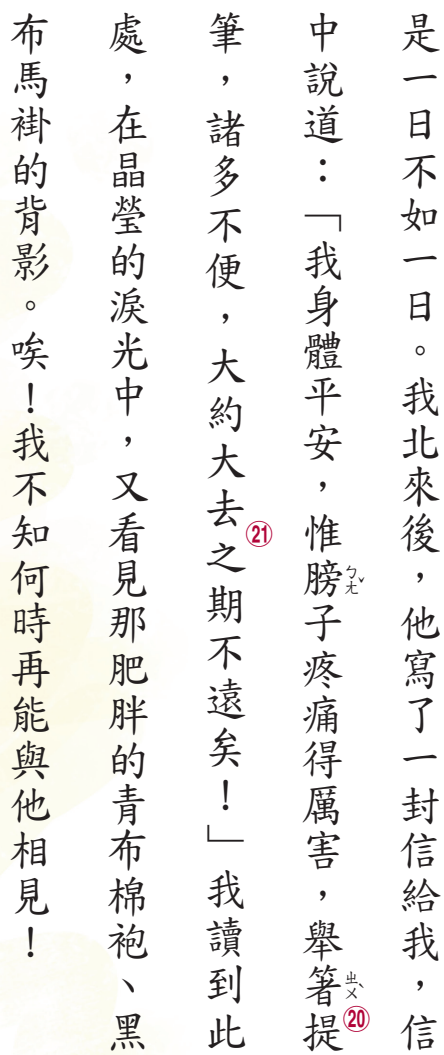 是一日不如一日。我北來後，他寫了一封信給我，信
中說道：「我身體平安，惟膀ㄅㄤˇ子疼痛得厲害，舉箸ㄓㄨˋ提⑳
筆，諸多不便，大約大去㉑之期不遠矣！」我讀到此
處，在晶瑩的淚光中，又看見那肥胖的青布棉袍、黑
布馬褂的背影。唉！我不知何時再能與他相見！